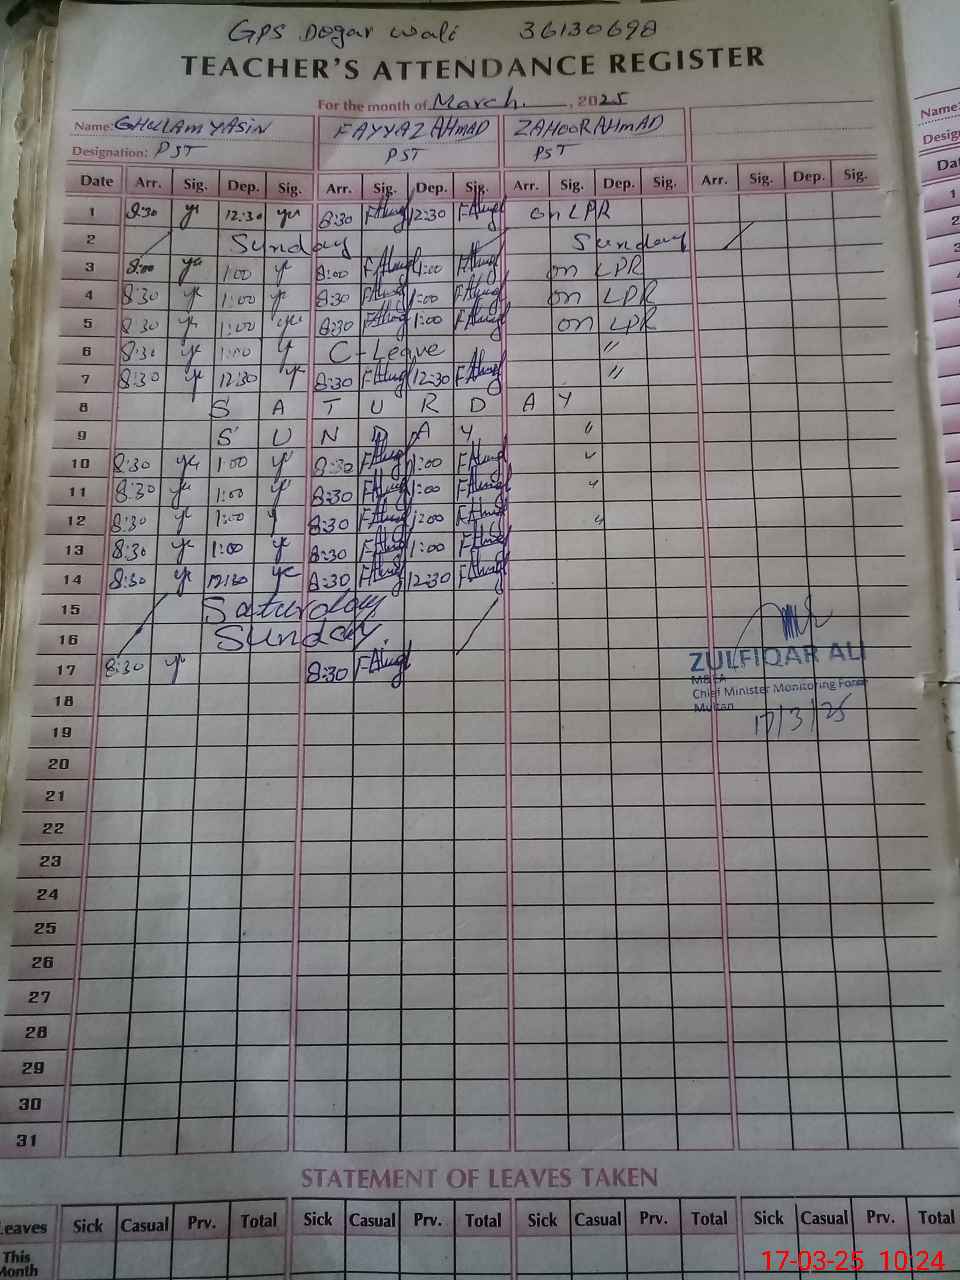 GPS Dogar Wali 36130698
TEACHER'S ATTENDANCE REGISTER
For the month of March, 2025
Name: GHULAM YASIN FAYYAZ AHMAD ZAHOOR AHMAD
Designation: PST PST PST
Date Arr. Sig. Dep. Sig. Arr. Sig. Dep. Sig. Arr. Sig. Dep. Sig. Arr. Sig. Dep. Sig.
1 8:30 12:30 8:30 12:30 on LPR
2 Sunday Sunday
3 8:00 1:00 8:00 1:00 on LPR
4 8:30 1:00 8:30 1:00 on LPR
5 8:30 1:00 8:30 1:00 on LPR
6 8:30 1:00 C-Leave "
7 8:30 12:30 8:30 12:30 "
8 S A T U R D A Y
9 S U N D A Y "
10 8:30 1:00 8:30 1:00 "
11 8:30 1:00 8:30 1:00 "
12 8:30 1:00 8:30 1:00 "
13 8:30 1:00 8:30 1:00
14 8:30 12:30 8:30 12:30
15 Saturday
16 Sunday
17 8:30 8:30
ZULFIQAR ALI
M&EA
Chief Minister Monitoring Force
Multan
17/3/25
18
19
20
21
22
23
24
25
26
27
28
29
30
31
STATEMENT OF LEAVES TAKEN
Leaves Sick Casual Prv. Total Sick Casual Prv. Total Sick Casual Prv. Total Sick Casual Prv. Total
This
Month
17-03-25 10:24
Name:
Design
Dat
1
2
3
4
5